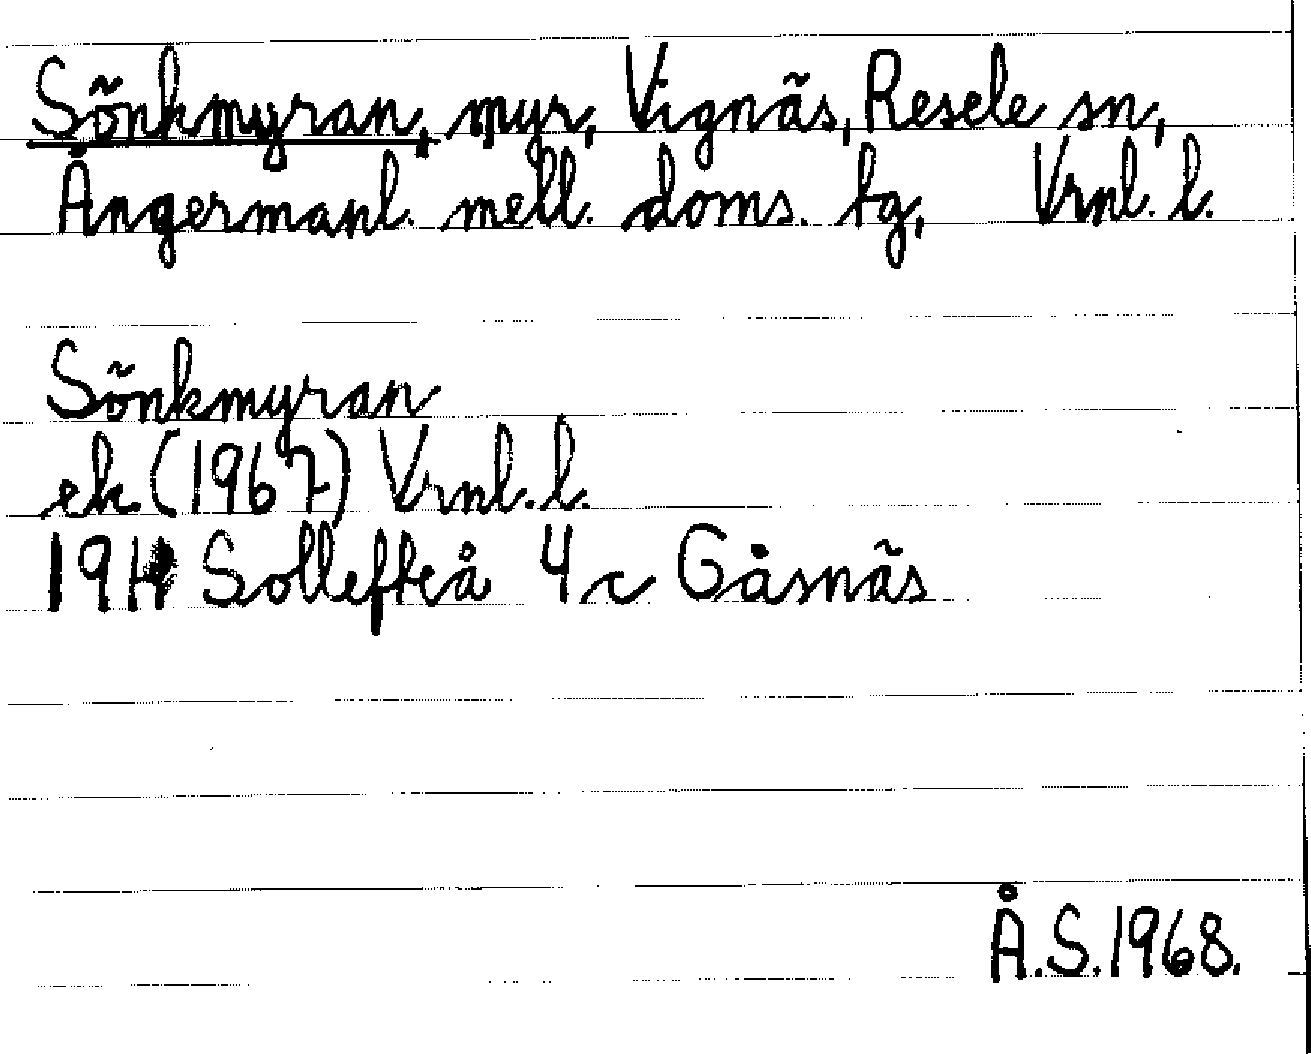 Sönkmyran, myr, Vignäs, Resele sn,
Ångermanl. mell. doms. tg, Vrnl. l.
Sönkmyran
ek (1967) Vrnl. l.
Sollefteå 4 c Gåsnäs
Å.S. 1968.